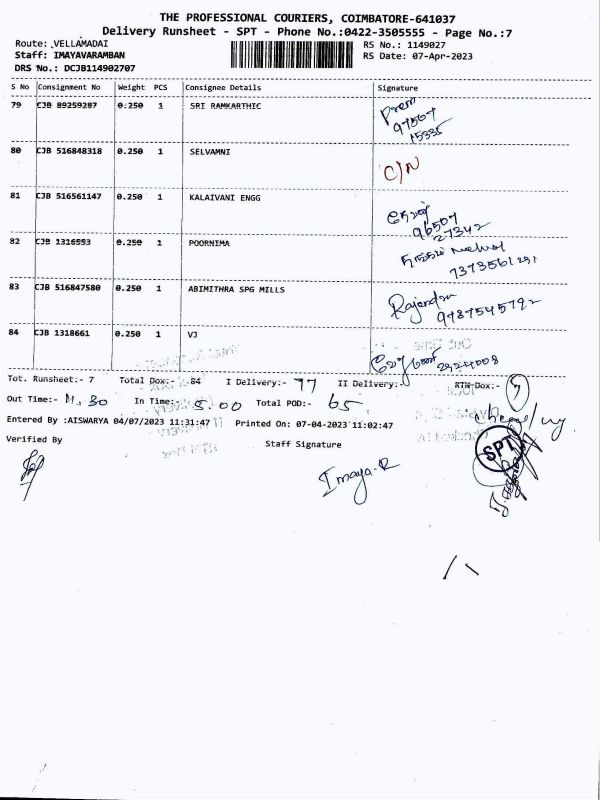 THE PROFESSIONAL COURIERS, COIMBATORE-641037
Delivery Runsheet - SPT - Phone No.:0422-3505555 - Page No.:7
Route: VELLAMADAI RS No.: 1149027
Staff: IMAYAVARAMBAN RS Date: 07-Apr-2023
DRS No.: DCJB114902707
S No Consignment No Weight PCS Consignee Details Signature
79 CJB 89259287 0.250 1 SRI RAMKARTHIC
Prem
97507
15335
80 CJB 516848318 0.250 1 SELVAMNI
C/N
81 CJB 516561147 0.250 1 KALAIVANI ENGG
96507
27342
82 CJB 1316993 0.250 1 POORNIMA
7373561291
83 CJB 516847580 0.250 1 ABIMITHRA SPG MILLS
Rajendra
9787545792
84 CJB 1318661 0.250 1 VJ
Tot. Runsheet:- 7 Total Dox:- 84 I Delivery:- 77 II Delivery:- RTN Dox:- 7
Out Time:- 11.30 In Time:- 5.00 Total POD:- 65
Entered By :AISWARYA 04/07/2023 11:31:47 Printed On: 07-04-2023 11:02:47
Verified By Staff Signature
Imaya.R
SPT